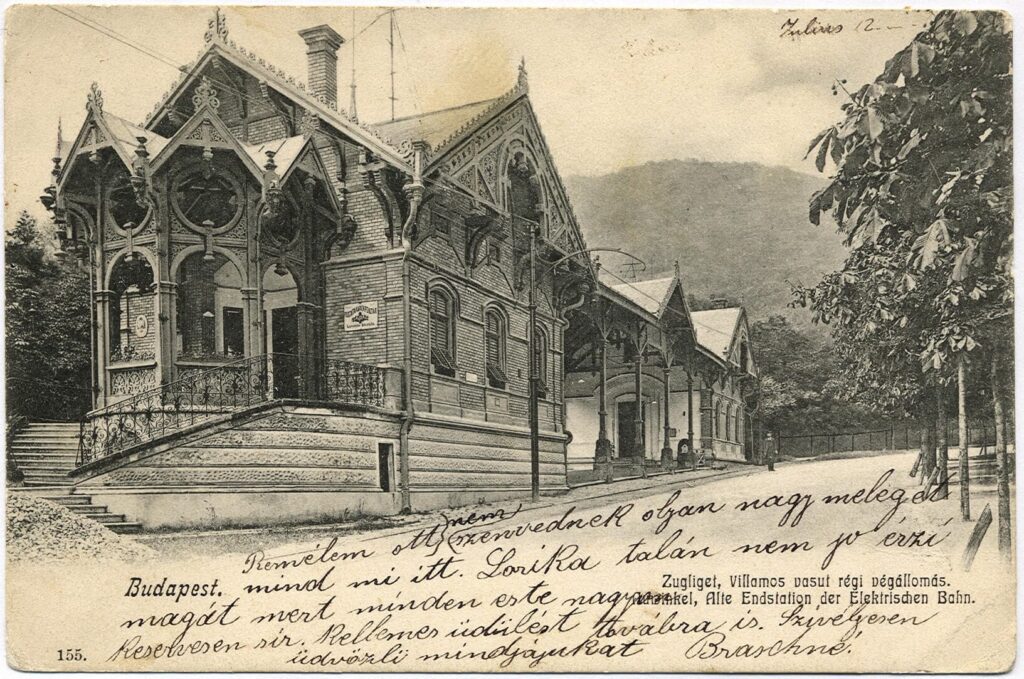 Julius 2
Remélem ott nem szenvednek olyan nagy meleget
mind mi itt. Lorika talán nem jo érzi
magát mert minden este nagyon
keservesen sír. Kellemes üdülést továbra is. Szívélyesen
üdvözli mindjájukat Braschné.
Budapest.
Zugliget, Villamos vasut régi végállomás.
Alte Endstation der Elektrischen Bahn.
155.